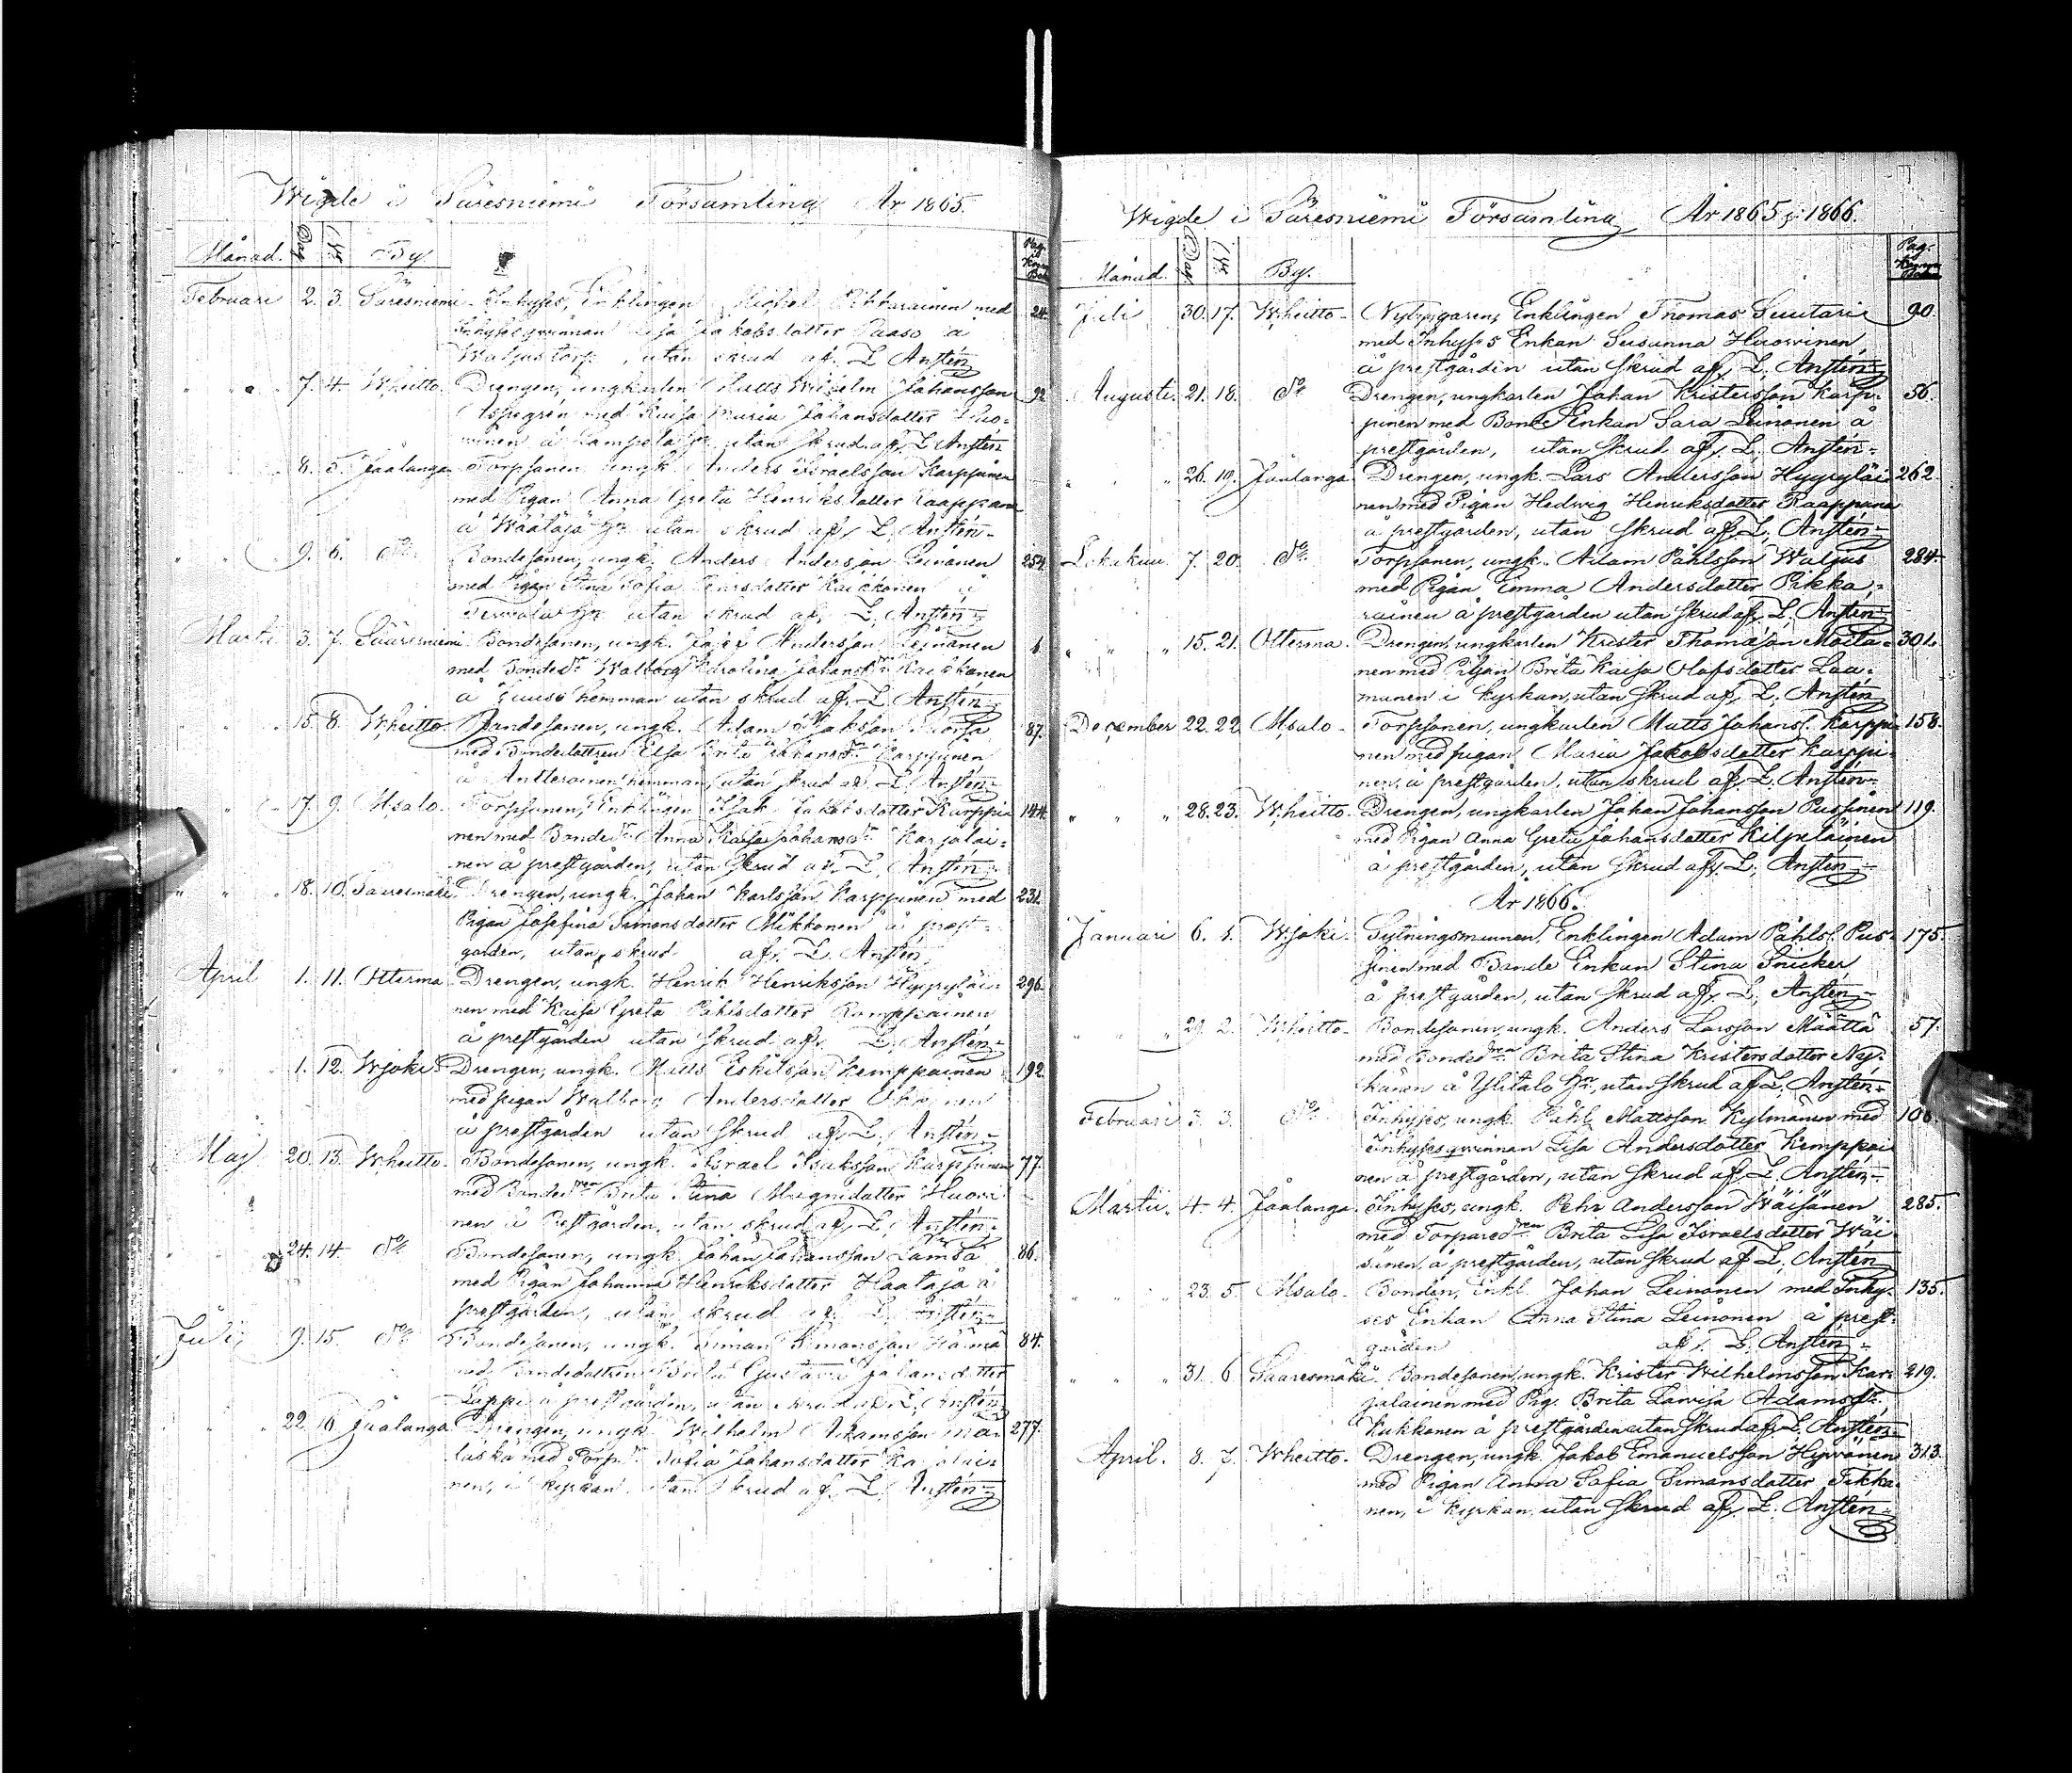 Wigde i Säresniemi Församling År 1865.
Månad. Dag N:r By. Pag. i Komm. Bok
Februari 2. 3. Säresniemi Inhyses, Enklingen Michel Pikkarainen med 24.
Inhyses qwinnan Lisa Jakobsdotter Paaso å
Waljus torp, utan skrud af, L. Anstén
" " 7. 4. W:heitto Drengen, ungkarlen Matts Wilhelm Johansson 92
Aspegrén med Kaisa Maria Johansdotter Luo-
minen å Lampela hn utan skrud af, L. Anstén
8. 5. Jaalanga Torpsonen ungk. Anders Israelsson Karppinen
med Pigan Anna Greta Henriksdotter Raappana
å Wäätäjä hn utan skrud af, L. Anstén
" " 9. 6. d:o Bondesonen, ungk. Anders Andersson Leinonen 254
med Pigan Stina Sofia Pehrsdotter Kaikkonen å
Terwola hn utan skrud af, L. Anstén
Marti 3. 7. Säresniemi Bondesonen, ungk. Josef Andersson Leinonen 6
med Bonded:r Walborg Karolina Johansd:r Kaikkonen
å hemman utan skrud af, L. Anstén
15. 8. W:heitto Bondesonen, ungk. Adam Isaksson 87.
med Bondedottren Elsa Brita Johansd:r Karppinen
å Anttoninen hemman, utan skrud af L. Anstén
17. 9. M:salo Torpsonen, Enklingen Isak Jakobsdotter Karppi- 144
nen med Bonded:r Anna Kaisa Johansd:r Karjalai-
nen å prestgården, utan skrud af, L. Anstén
" " 18. 10. Saaresmäki Drengen, ungk. Johan Karlsson Karppinen med 231.
Pigan Josefina Simonsdotter Mikkonen å prest-
gården, utan skrud af, L. Anstén
April 1. 11. Otterma Drengen, ungk. Henrik Henriksson Hyyryläi- 296
nen med Kaisa Greta Påhlsdotter Komppainen
å prestgården utan skrud af, L. Anstén
1. 12. W:joki Drengen, ungk. Matts Eskilsson Kemppainen 192
med pigan Walborg Andersdotter
å prestgården utan skrud af, L. Anstén
Maj 20. 13. W:heitto Bondesonen, ungk. Israel Isaksson Karppinen 77.
med Bonded:ren Brita Stina Magnidotter Huowi-
nen å Prestgården, utan skrud af, L. Anstén
24. 14. d:o Bondesonen, ungk. Johan Johansson Lamsa 86.
med Pigan Johanna Henriksdotter Haataja å
prestgården, utan skrud af, L. Anstén
Juli 9. 15. d:o Bondesonen, ungk. Simon Simonsson Härmä 84.
med Bondedottren Brita Gustawa Johansdotter
Lappi å prestgården, utan skrud af, L. Anstén
22. 16. Jaalanga Drengen, ungk. Wilhelm Adamsson Mä- 277.
läskä med Torp:d:r Sofia Johansdotter Karjalai-
nen, i kyrkan utan skrud af, L. Anstén
Wigde i Säresniemi Församling År 1865 & 1866.
Månad. Dag N:r By. Pag. i Komm. Bok
Juli 30. 17. W:heitto Nybyggaren, Enklingen Thomas Suutari 90.
med Inhyses Enkan Susanna Huowinen,
å prestgården utan skrud af, L. Anstén
Augusti 21. 18. d:o Drengen, ungkarlen Johan Kristersson Karp- 56.
pinen med Bonde Enkan Sara Leinonen å
prestgården, utan skrud af, L. Anstén
" " 26. 19. Jaalanga Drengen, ungk. Lars Andersson Hyyryläi- 262
nen med Pigan Hedwig Henriksdotter Raappana
å prestgården, utan skrud af, L. Anstén
7. 20. d:o Torpsonen, ungk. Adam Påhlsson Waljus 284.
med Pigan Emma Andersdotter Pikka-
rainen å prestgården utan skrud af, L. Anstén
" " 15. 21. Otterma Drengen, ungkarlen Krister Thomasson Mosta- 301.
nen med Pigan Brita Kaisa Olofsdotter Laa-
munen i kyrkan, utan skrud af, L. Anstén
December 22. 22. M:salo Torpsonen, ungkarlen Matts Johans. Karppi- 158.
nen med pigan Maria Jakobsdotter Karppi-
nen, å prestgården, utan skrud af, L. Anstén
" " 28. 23. W:heitto Drengen, ungkarlen Johan Johansson Pussinen 119.
med Pigan Anna Greta Johansdotter Kilpeläinen
å prestgården, utan skrud af, L. Anstén
År 1866.
Januari 6. 1. W:joki Sytningsmannen, Enklingen Adam Påhls. Pus- 175.
sinen med Bonde Enkan Stina Snicker
å prestgården, utan skrud af, L. Anstén
" " 21. 2. W:heitto Bondesonen, ungk. Anders Larsson Määttä 57.
med Bonded:ren Brita Stina Kristersdotter Ny-
känen å Ylitalo hn, utan skrud af L. Anstén
Februari 3. 3. d:o Inhyses, ungk. Påhl Mattsson Kylmänen med
Inhyses qwinnan Lisa Andersdotter Kemppai-
nen å prestgården, utan skrud af L. Anstén
Martii 4. 4. Jaalanga Inhyses, ungk. Pehr Andersson Wäisänen 285.
med Torpared:ren Brita Lisa Israelsdotter Wäi-
sänen, å prestgården, utan skrud af L. Anstén
" " 23. 5. M:salo Bonden, Enkl. Johan Leinonen med Inhy- 135.
ses Enkan Anna Stina Leinonen å prest-
gården af, L. Anstén
" " 31. 6. Saaresmäki Bondesonen, ungk. Krister Wilhelmsson Kar- 219.
jalainen med Pig. Brita Lowisa Adamsd:r
Kukkonen å prestgården utan skrud af, L. Anstén
April. 8. 7. W:heitto Drengen, ungk. Jakob Emanuelsson Hywönen 313.
med Pigan Anna Sofia Simonsdotter Tikka-
nen, i kyrkan, utan skrud af, L. Anstén